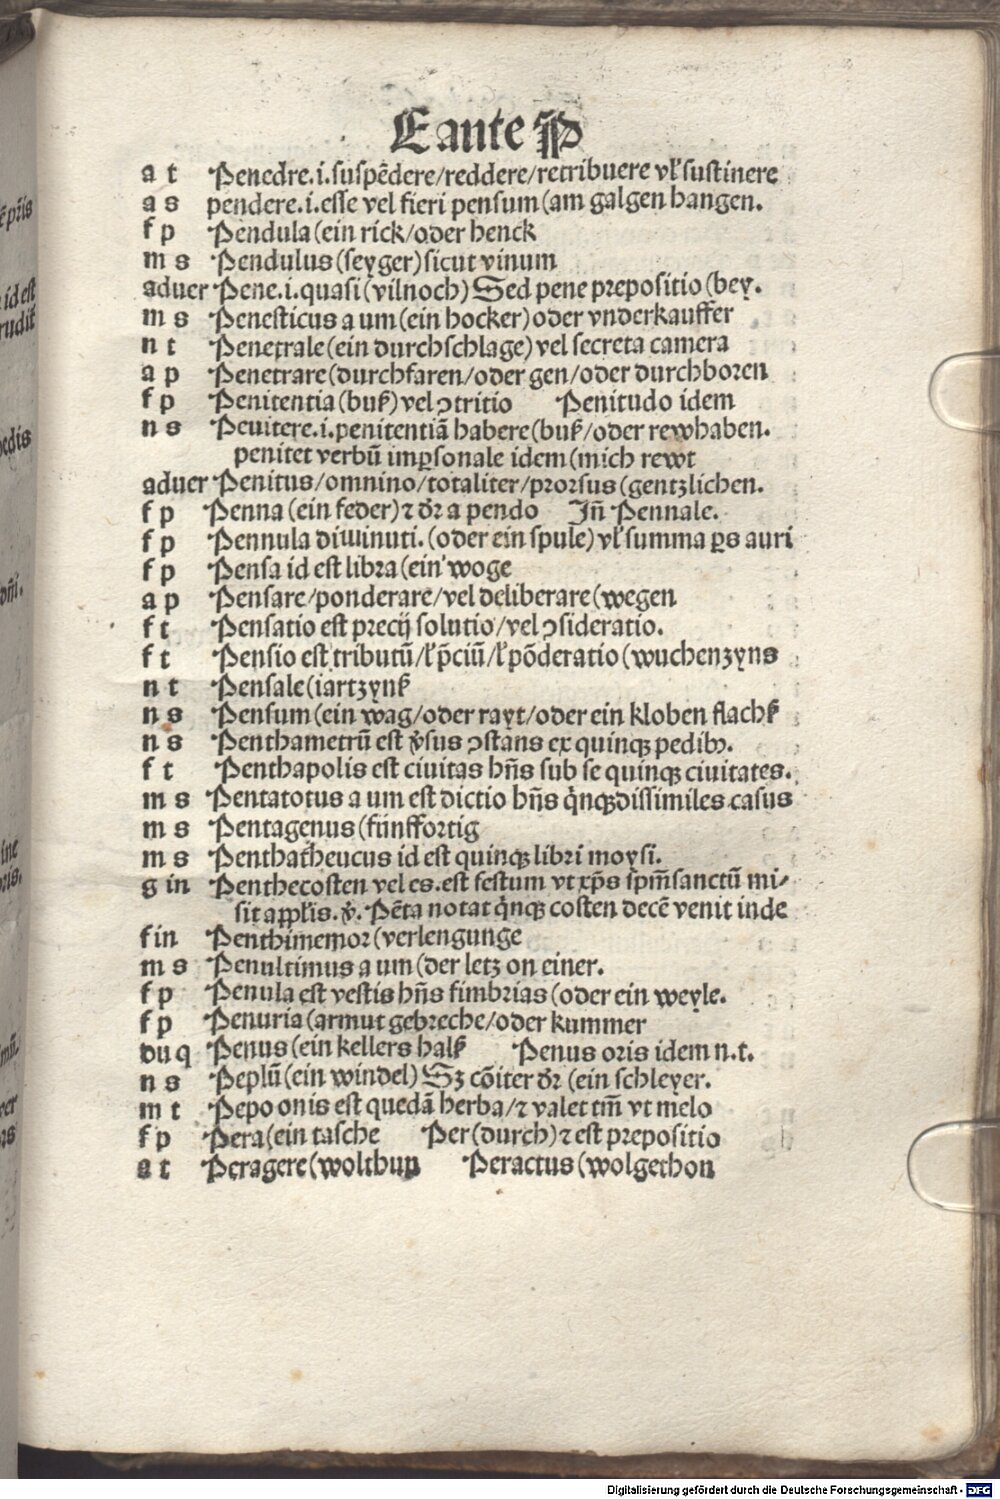 E ante P
a t Penedre.i.suspēdere/reddere/retribuere vl' sustinere
a s pendere.i.esse vel fieri pensum (am galgen hangen.
f p Pendula (ein rick/oder henck
m s Pendulus (seyger) sicut vinum
aduer Pene.i.quasi (vilnoch) Sed pene prepositio (bey.
m s Penesticus a um (ein hocker) oder vnderkauffer
n t Penetrale (ein durchschlage) vel secreta camera
a p Penetrare (durchfaren/oder gen/oder durchboren
f p Penitentia (buß) vel ꝯtritio Penitudo idem
n s Peuitere.i.penitentiā habere (buß/oder rewhaben.
penitet verbū imꝑsonale idem (mich rewt
aduer Penitus/omnino/totaliter/prorsus (gentzlichen.
f p Penna (ein feder) ⁊ dr̄ a pendo Jn̄ Pennale.
f p Pennula diminuti. (oder ein spule) vl' summa ꝑs auri
f p Pensa id est libra (ein woge
a p Pensare/ponderare/vel deliberare (wegen
f t Pensatio est precij solutio/vel ꝯsideratio.
f t Pensio est tributū/l' p̄ciū/l' pōderatio (wuchenzyns
n t Pensale (iartzynß
n s Pensum (ein wag/oder rayt/oder ein kloben flachß
n s Penthametrū est v̓sus ꝯstans ex quinqꝫ pedibꝫ.
f t Penthapolis est ciuitas hn̄s sub se quinqꝫ ciuitates.
m s Pentatotus a um est dictio hn̄s q̇nqꝫ dissimiles casus
m s Pentagenus (fünffortig
m s Penthatheucus id est quinqꝫ libri moysi.
g in Penthecosten vel es. est festum vt xp̄s sp̄m sanctū mi⸗
sit apl̓is. v̓. Pēta notat q̇nqꝫ costen decē venit inde
f in Penthimemor (verlengunge
m s Penultimus a um (der letz on einer.
f p Penula est vestis hn̄s fimbrias (oder ein weyle.
f p Penuria (armut gebreche/oder kummer
du q Penus (ein kellers halß Penus oris idem n.t.
n s Peplū (ein windel) Sꝫ cōiter dr̄ (ein schleyer.
m t Pepo onis est quedā herba/⁊ valet tm̄ vt melo
f p Pera (ein tasche Per (durch) ⁊ est prepositio
a t Peragere (wolthun Peractus (wolgethon
Digitalisierung gefördert durch die Deutsche Forschungsgemeinschaft - DFG